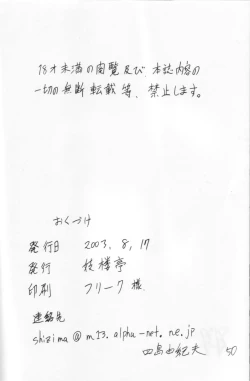 18才未満の閲覧及び本誌内容の
一切の無断転載等、禁止します。
おくづけ
発行日 2003, 8, 17
発行 枝楼亭
印刷 フリーク様
連絡先
shizima@m13.alpha-net.ne.jp
四島由紀夫
50